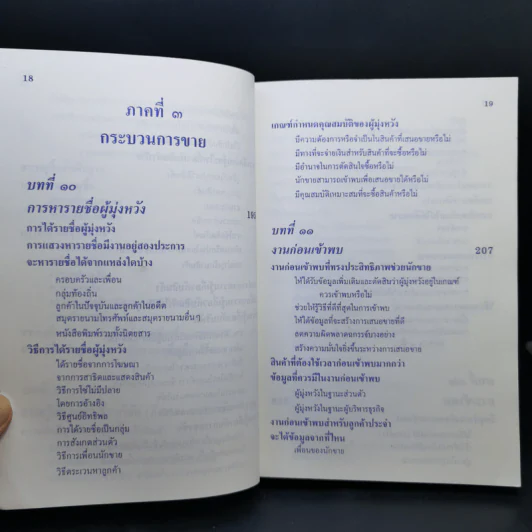 18
ภาคที่ ๓
กระบวนการขาย
บทที่ ๑๐
การหารายชื่อผู้มุ่งหวัง
การได้รายชื่อผู้มุ่งหวัง
การแสวงหารายชื่อมีงานอยู่สองประการ
จะหารายชื่อได้จากแหล่งใดบ้าง
ครอบครัวและเพื่อน
กลุ่มท้องถิ่น
ลูกค้าในปัจจุบันและลูกค้าในอดีต
สมุดรายนามโทรศัพท์และสมุดรายนามอื่นๆ
หนังสือพิมพ์รวมทั้งนิตยสาร
วิธีการได้รายชื่อผู้มุ่งหวัง
ได้รายชื่อจากการโฆษณา
จากการสาธิตและแสดงสินค้า
วิธีการใช้ไม่มีปลาย
โดยการอ้างอิง
วิธีศูนย์อิทธิพล
การได้รายชื่อเป็นกลุ่ม
การสังเกตส่วนตัว
วิธีการเพื่อนนักขาย
วิธีตระเวนหาลูกค้า
19
เกณฑ์กำหนดคุณสมบัติของผู้มุ่งหวัง
มีความต้องการหรือจำเป็นในสินค้าที่เสนอขายหรือไม่
มีทางที่จะจ่ายเงินสำหรับสินค้าที่จะซื้อหรือไม่
มีอำนาจในการตัดสินใจซื้อหรือไม่
นักขายสามารถเข้าพบเพื่อเสนอขายได้หรือไม่
มีคุณสมบัติเหมาะสมที่จะซื้อสินค้าหรือไม่
บทที่ ๑๑
งานก่อนเข้าพบ 207
งานก่อนเข้าพบที่ทรงประสิทธิภาพช่วยนักขาย
ให้ได้รับข้อมูลเพิ่มเติมและตัดสินว่าผู้มุ่งหวังอยู่ในเกณฑ์
ควรเข้าพบหรือไม่
ช่วยให้รู้วิธีที่ดีที่สุดในการเข้าพบ
ให้ได้ข้อมูลที่จะสร้างการเสนอขายที่ดี
ลดความผิดพลาดฉกรรจ์บางอย่าง
สร้างความมั่นใจยิ่งขึ้นระหว่างการเสนอขาย
สินค้าที่ต้องใช้เวลาก่อนเข้าพบมากกว่า
ข้อมูลที่ควรมีในงานก่อนเข้าพบ
ผู้มุ่งหวังในฐานะส่วนตัว
ผู้มุ่งหวังในฐานะผู้บริหารธุรกิจ
งานก่อนเข้าพบสำหรับลูกค้าประจำ
จะได้ข้อมูลจากที่ไหน
เพื่อนของนักขาย